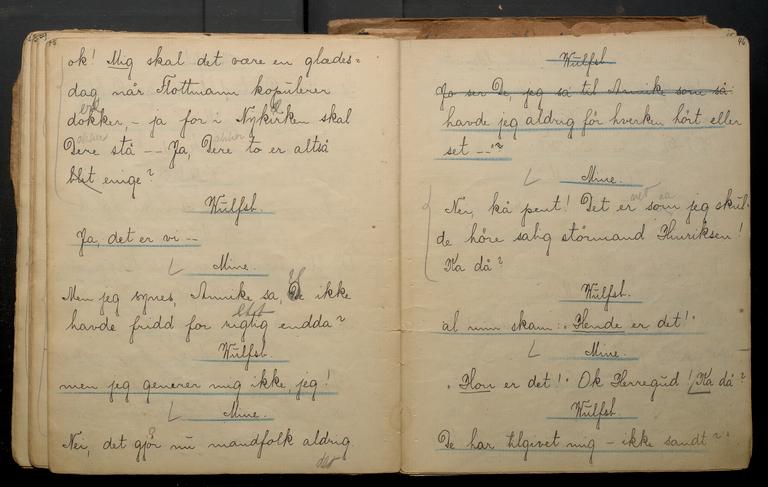 45
ok! Mig skal det være en glædes=
dag, når Flottmann kopulerer
dokker, – ja for i Nykirken skal
Dere stå – – Ja, Dere to er altså
blet enige?
Wulfst.
Ja, det er vi – –
Mine.
Men jeg synes, Annike sa, De ikke
havde fridd for rigtig endda?
Wulfst.
men jeg generer mig ikke, jeg!
Mine.
Nei, det gjør nu mandfolk aldrig.
det
46
Wulfst.
Ja ser De, jeg sa til Annike som så
havde jeg aldrig før hverken hört eller
set – –"?
Mine.
Nei, kå pent! Det er som jeg skul=
de höre salig störmand Henriksen!
Ka då?
Wulfst.
al min skam: "Hende er det!"
Mine.
"Hon er det!" Ok Herregud! Ka då?
Wulfst.
De har tilgivet mig – ikke sandt?"